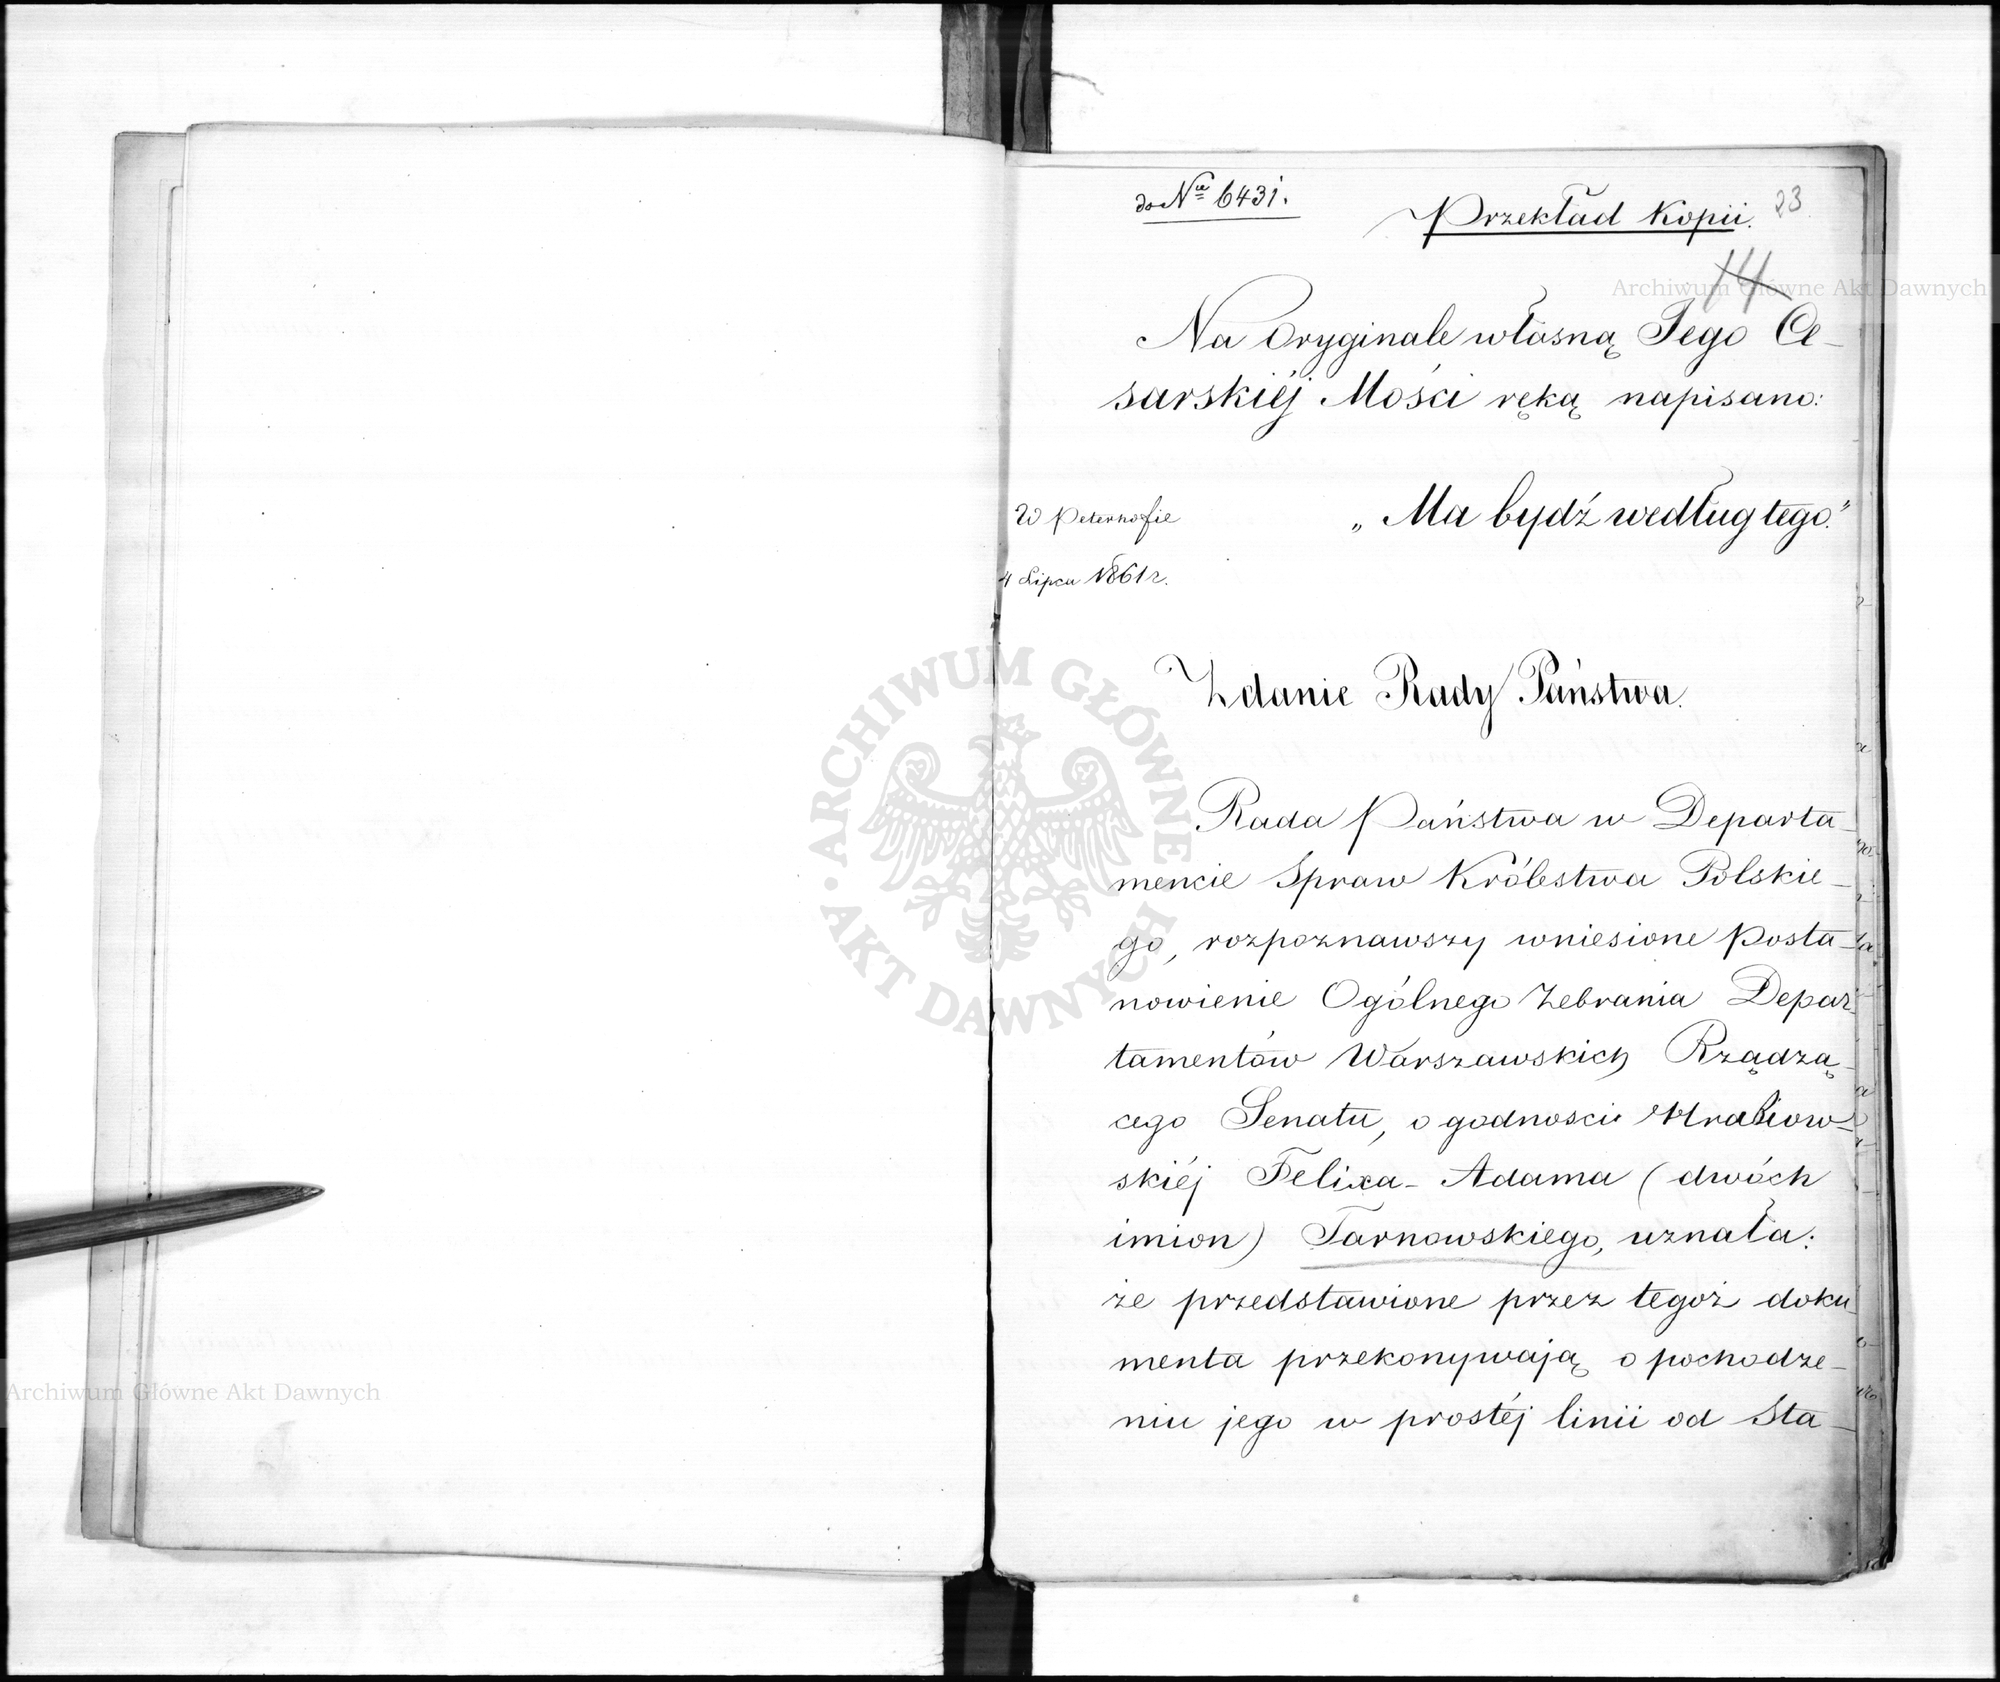 do N<sup>ru</sup> 6431.
Przekład Kopii.
23
14
Na Oryginale własną Jego Ce-
sarskiéj Mości ręką napisano:
W Peterhofie
„Ma bydź według tego."
4 Lipca 1861 r.
Zdanie Rady Państwa.
Rada Państwa w Departa-
mencie Spraw Królestwa Polskie-
go, rozpoznawszy wniesione posta-
nowienie Ogólnego Zebrania Depar-
tamentów Warszawskich Rządzą-
cego Senatu, o godności Hrabiow-
skiéj Felixa-Adama (dwóch
imion) Tarnowskiego, uznała:
że przedstawione przez tegoż doku-
menta przekonywają o pochodze-
niu jego w prostéj linii od Sta-
ARCHIWUM GŁÓWNE AKT DAWNYCH
Archiwum Główne Akt Dawnych
Archiwum Główne Akt Dawnych